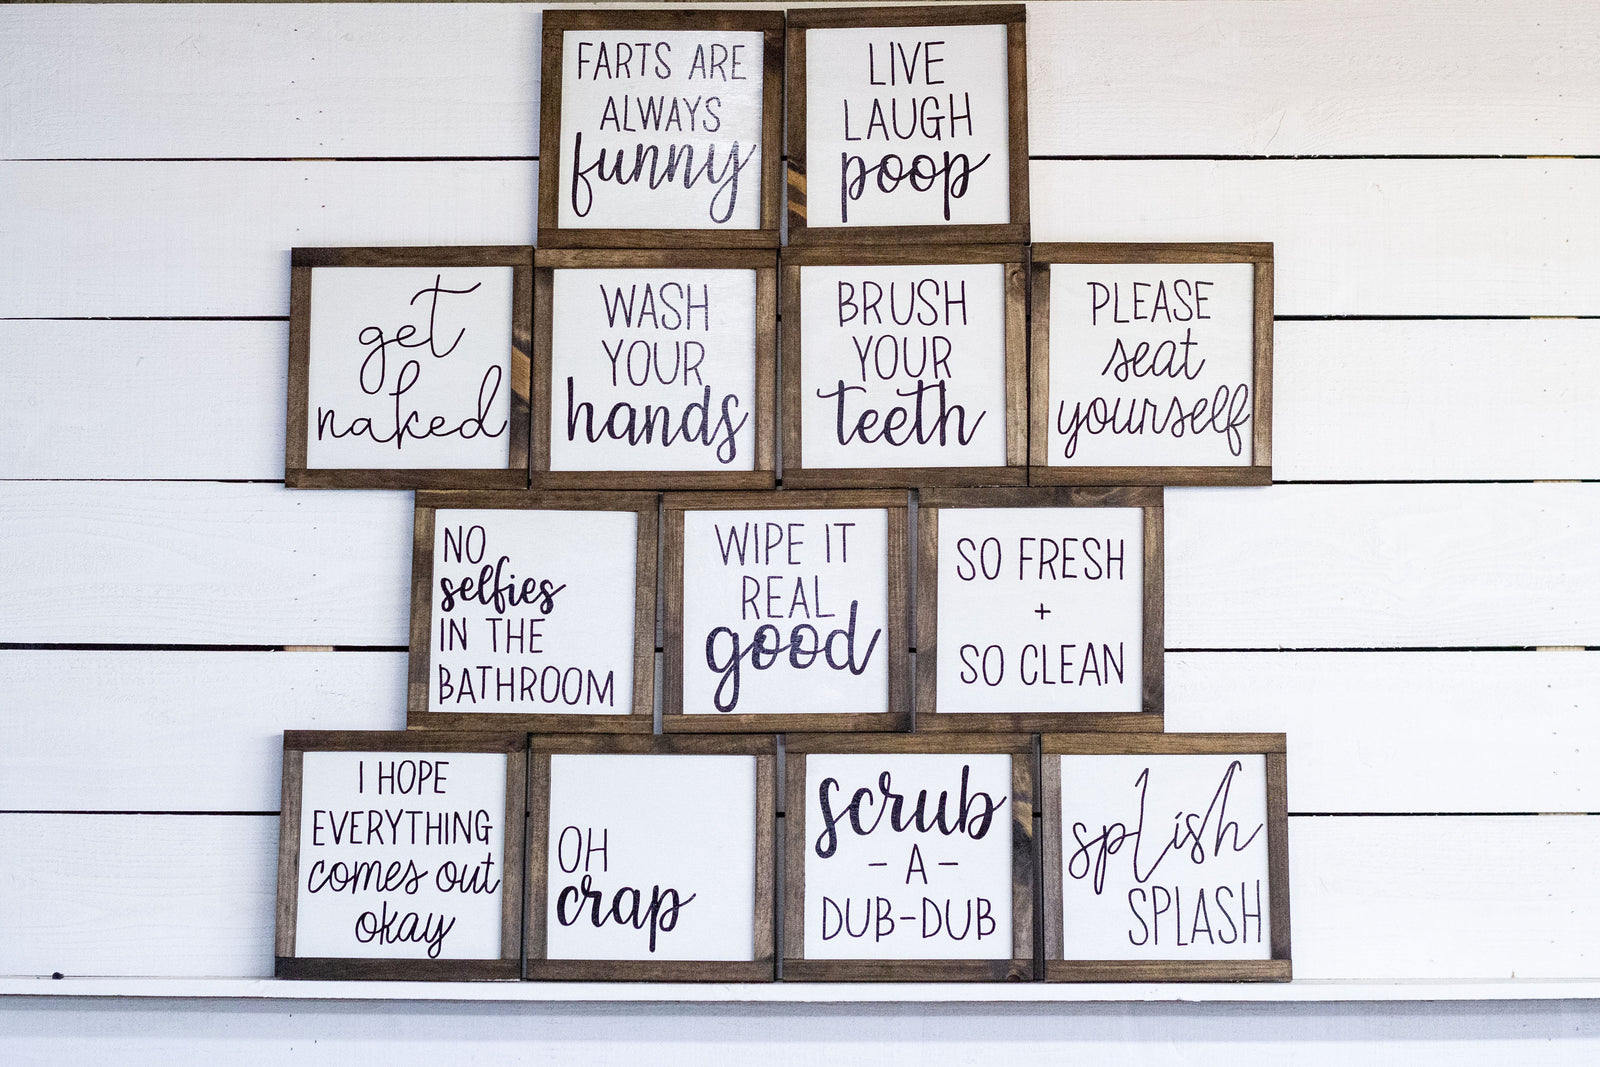 FARTS ARE
ALWAYS
funny
LIVE
LAUGH
poop
get
naked
WASH
YOUR
hands
BRUSH
YOUR
teeth
PLEASE
seat
yourself
NO
selfies
IN THE
BATHROOM
WIPE IT
REAL
good
SO FRESH
+
SO CLEAN
I HOPE
EVERYTHING
comes out
okay
OH
crap
scrub
- A -
DUB-DUB
splish
SPLASH